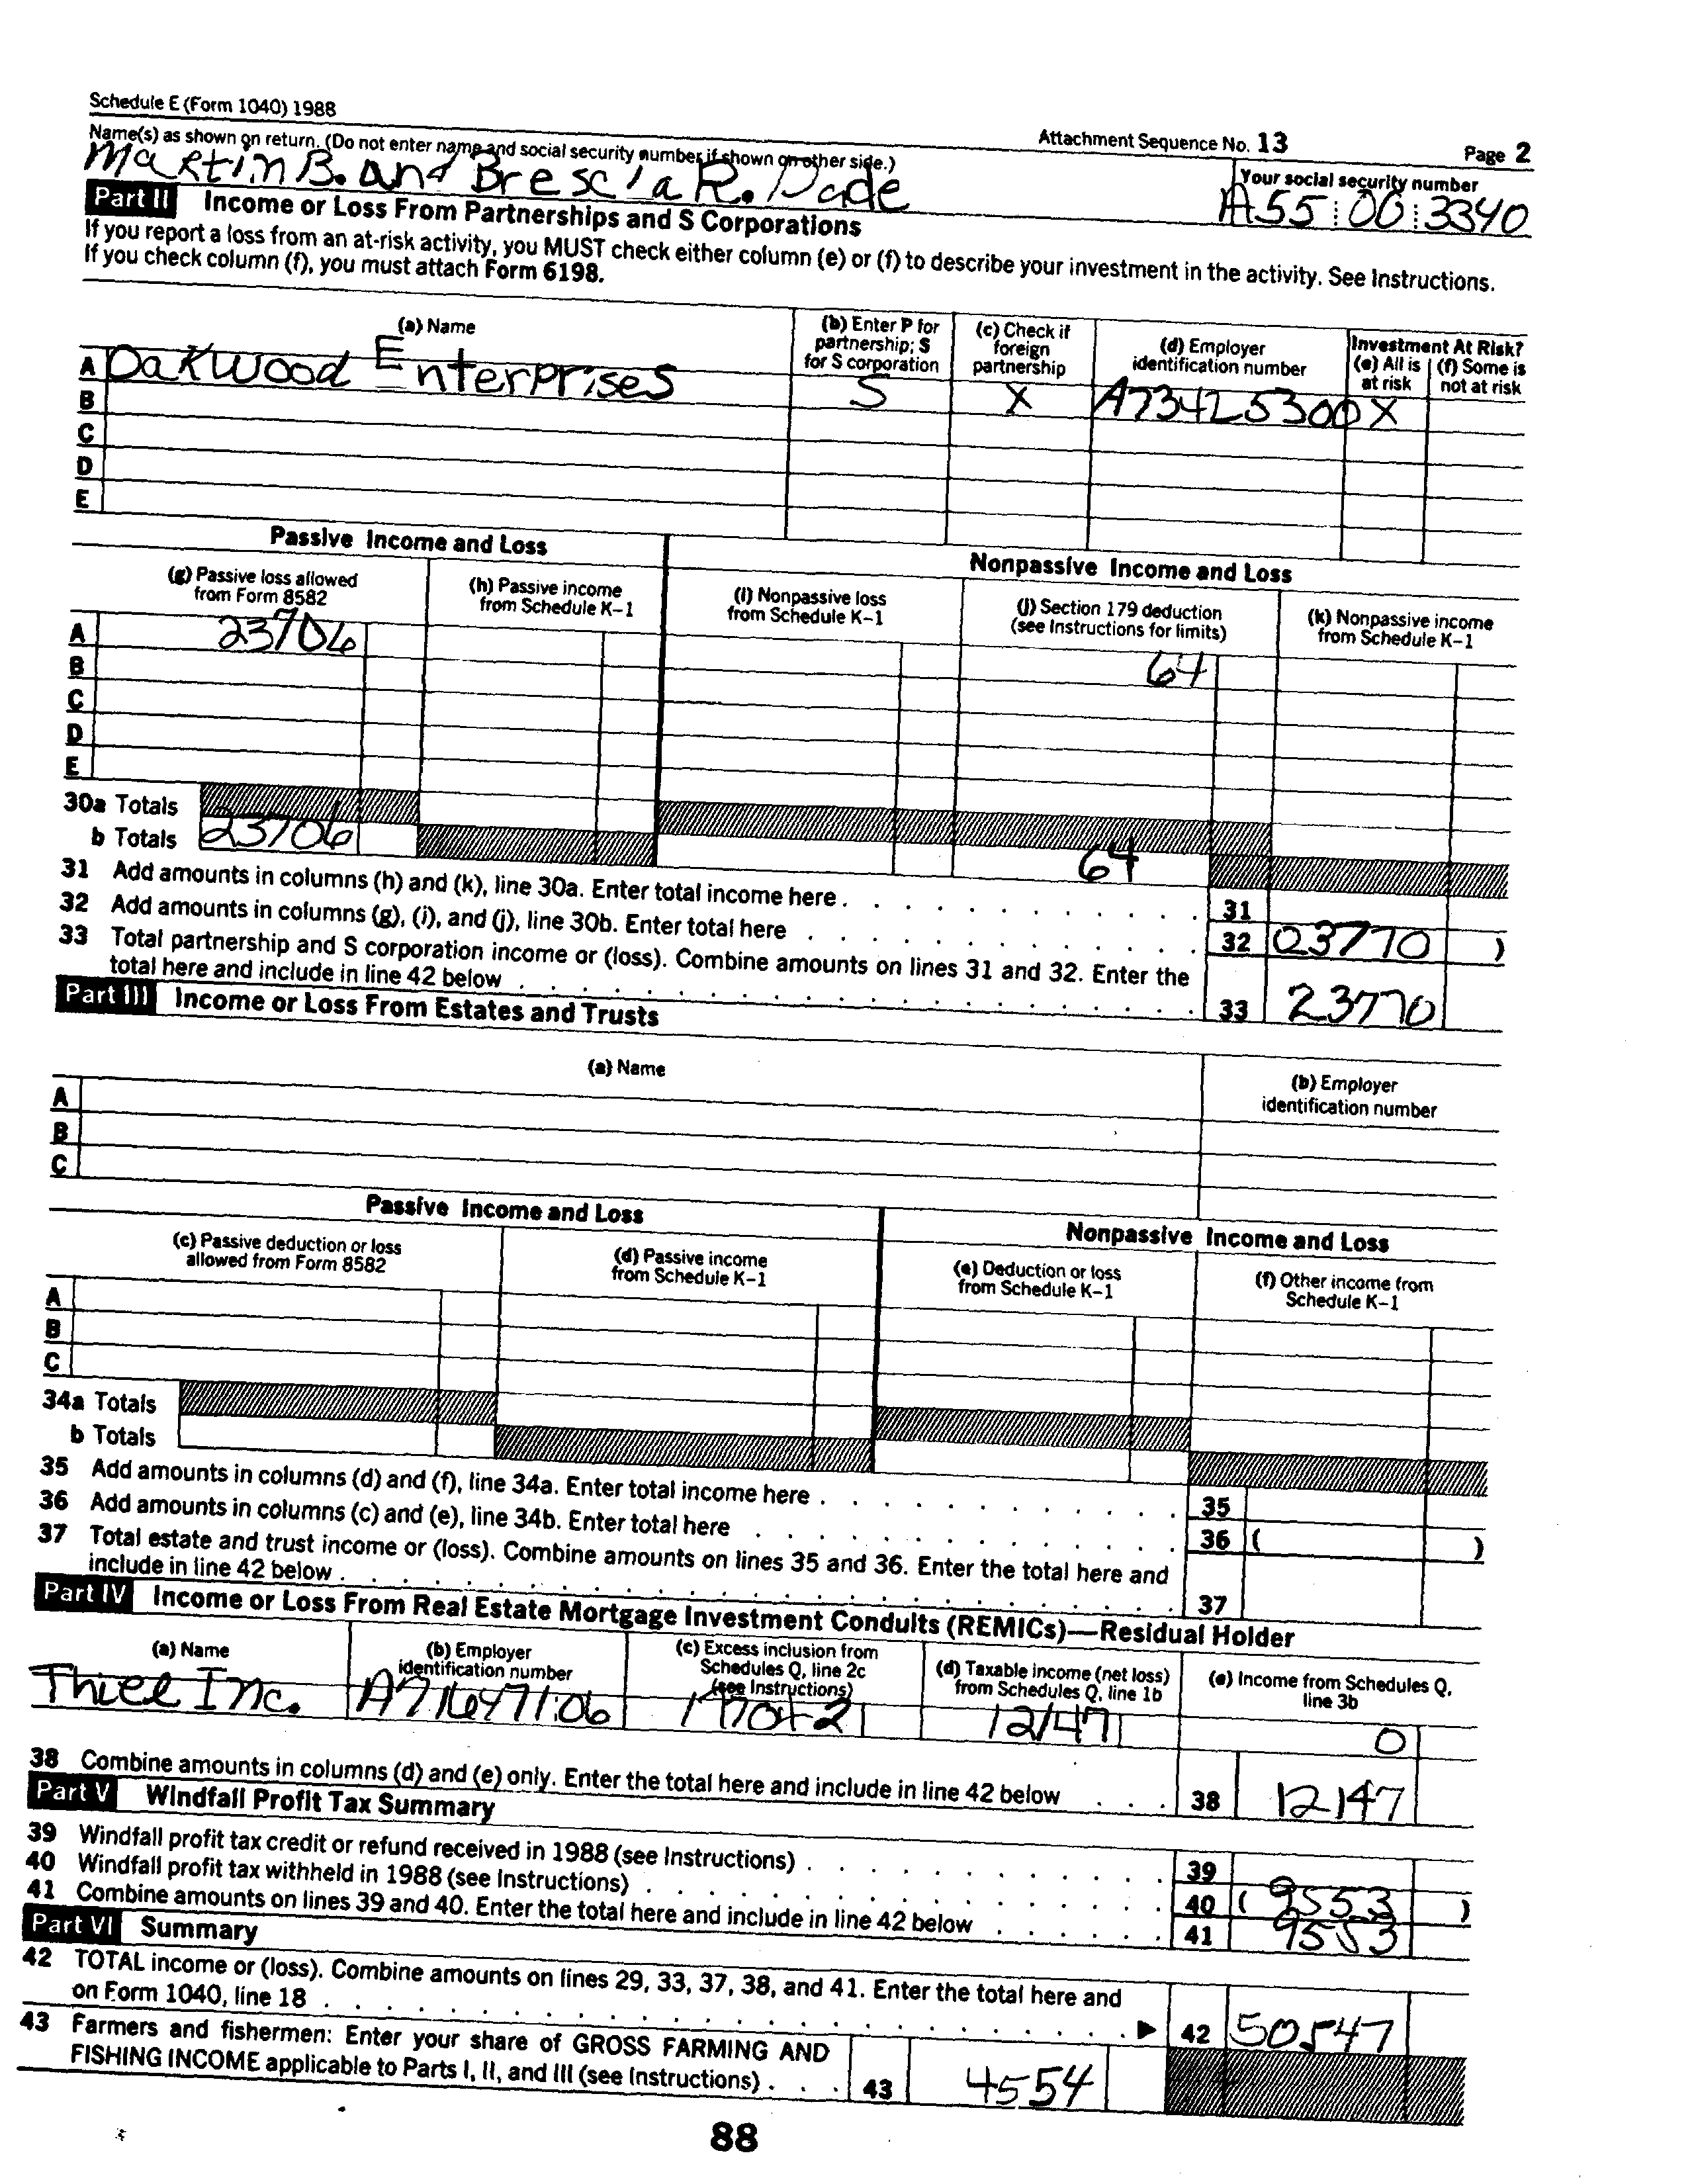 Schedule E (Form 1040) 1988
Attachment Sequence No. 13 Page 2
Name(s) as shown on return. (Do not enter name and social security number if shown on other side.)
Your social security number
Martin B. and Brescia R. Dade
A55 00 3340
Part II Income or Loss From Partnerships and S Corporations
If you report a loss from an at-risk activity, you MUST check either column (e) or (f) to describe your investment in the activity. See Instructions.
If you check column (f), you must attach Form 6198.
(a) Name
(b) Enter P for partnership; S for S corporation
(c) Check if foreign partnership
(d) Employer identification number
Investment At Risk?
(e) All is at risk
(f) Some is not at risk
A Oakwood Enterprises S X A73425300 X
B
C
D
E
Passive Income and Loss
Nonpassive Income and Loss
(g) Passive loss allowed from Form 8582
(h) Passive income from Schedule K-1
(i) Nonpassive loss from Schedule K-1
(j) Section 179 deduction (see Instructions for limits)
(k) Nonpassive income from Schedule K-1
A 23706 64
B
C
D
E
30a Totals
b Totals 23706 64
31 Add amounts in columns (h) and (k), line 30a. Enter total income here . . . 31
32 Add amounts in columns (g), (i), and (j), line 30b. Enter total here . . . 32 23770 )
33 Total partnership and S corporation income or (loss). Combine amounts on lines 31 and 32. Enter the
total here and include in line 42 below . . . 33 23770
Part III Income or Loss From Estates and Trusts
(a) Name
(b) Employer identification number
A
B
C
Passive Income and Loss
Nonpassive Income and Loss
(c) Passive deduction or loss allowed from Form 8582
(d) Passive income from Schedule K-1
(e) Deduction or loss from Schedule K-1
(f) Other income from Schedule K-1
A
B
C
34a Totals
b Totals
35 Add amounts in columns (d) and (f), line 34a. Enter total income here . . . 35
36 Add amounts in columns (c) and (e), line 34b. Enter total here . . . 36 ( )
37 Total estate and trust income or (loss). Combine amounts on lines 35 and 36. Enter the total here and
include in line 42 below . . . 37
Part IV Income or Loss From Real Estate Mortgage Investment Conduits (REMICs)—Residual Holder
(a) Name
(b) Employer identification number
(c) Excess inclusion from Schedules Q, line 2c (see Instructions)
(d) Taxable income (net loss) from Schedules Q, line 1b
(e) Income from Schedules Q, line 3b
Thiel Inc. A71647106 12147 0
38 Combine amounts in columns (d) and (e) only. Enter the total here and include in line 42 below . . . 38 12147
Part V Windfall Profit Tax Summary
39 Windfall profit tax credit or refund received in 1988 (see Instructions) . . . 39
40 Windfall profit tax withheld in 1988 (see Instructions) . . . 40 ( 9553 )
41 Combine amounts on lines 39 and 40. Enter the total here and include in line 42 below . . . 41 9553
Part VI Summary
42 TOTAL income or (loss). Combine amounts on lines 29, 33, 37, 38, and 41. Enter the total here and
on Form 1040, line 18 . . . ▶ 42 50547
43 Farmers and fishermen: Enter your share of GROSS FARMING AND
FISHING INCOME applicable to Parts I, II, and III (see Instructions) . . . 43 4554
88